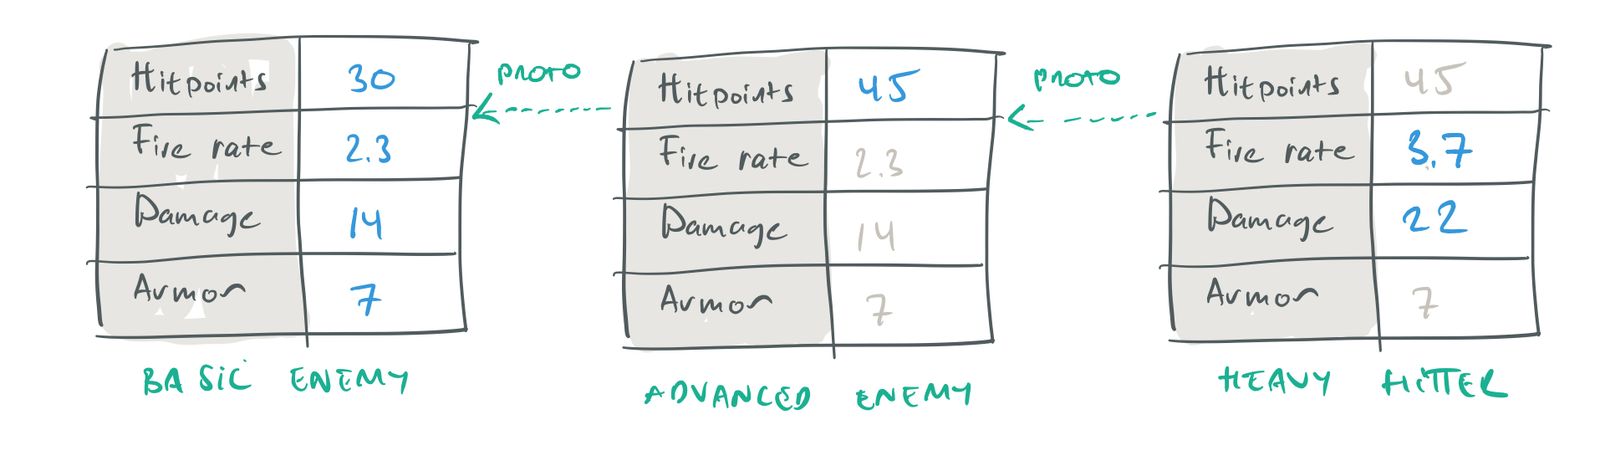 Hitpoints 30
Fire rate 2.3
Damage 14
Armor 7
BASIC ENEMY
PROTO
Hitpoints 45
Fire rate 2.3
Damage 14
Armor 7
ADVANCED ENEMY
PROTO
Hitpoints 45
Fire rate 3.7
Damage 22
Armor 7
HEAVY HITTER